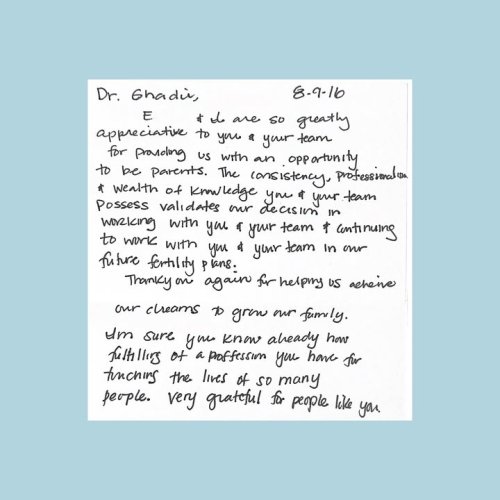 Dr. Ghadir, 8-9-16
E & I are so greatly
appreciative to you & your team
for providing us with an opportunity
to be parents. The consistency, professionalism
& wealth of knowledge you & your team
possess validates our decision in
working with you & your team & continuing
to work with you & your team in our
future fertility plans.
Thank you again for helping us acheive
our dreams to grow our family.
I'm sure you know already how
fulfilling of a proffession you have for
touching the lives of so many
people. Very grateful for people like you.